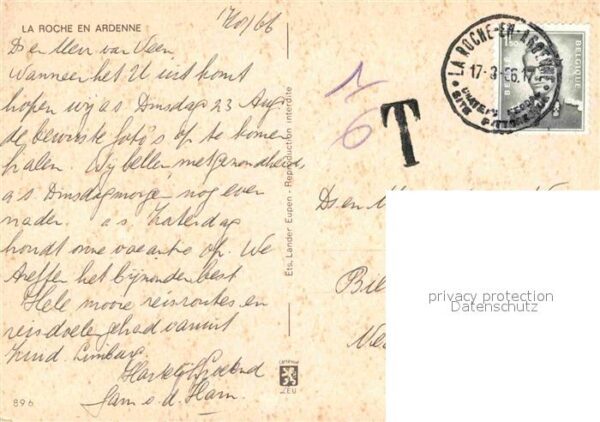 LA ROCHE EN ARDENNE
17/8/66
Ds en Mevr. van Veen
Wanneer het U uist komt
hopen wij a s Dinsdag 23 Aug.
de bewuste foto's op te komen
halen. Wij bellen met gezondheid,
a s. Dinsdagmorgen nog even
nader. a s. Zaterdag
houdt onze vacantie op. We
treffen het bijzonder best
Hele mooie reisroutes en
reisdoelen gehad vanuit
Zuid Limburg.
Hartelijk
Jam v. d. Ham.
896
Ets. Lander Eupen - Reproduction interdite
CARTREUP
EU
1/6
T
LA ROCHE-EN-ARDENNE
17-8-66.17
SITE
BELGIE
BELGIQUE
1.50
Ds en
privacy protection
Datenschutz